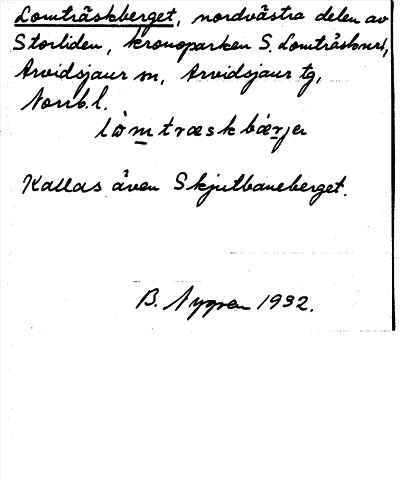 Lomträskberget, nordvästra delen av
Storliden, kronoparken S. Lomträsknäs,
Arvidsjaur sn, Arvidsjaur tg,
Norrb. l.
lòmtræskbærje
Kallas även Skjutbaneberget.
B. Nygren 1932.